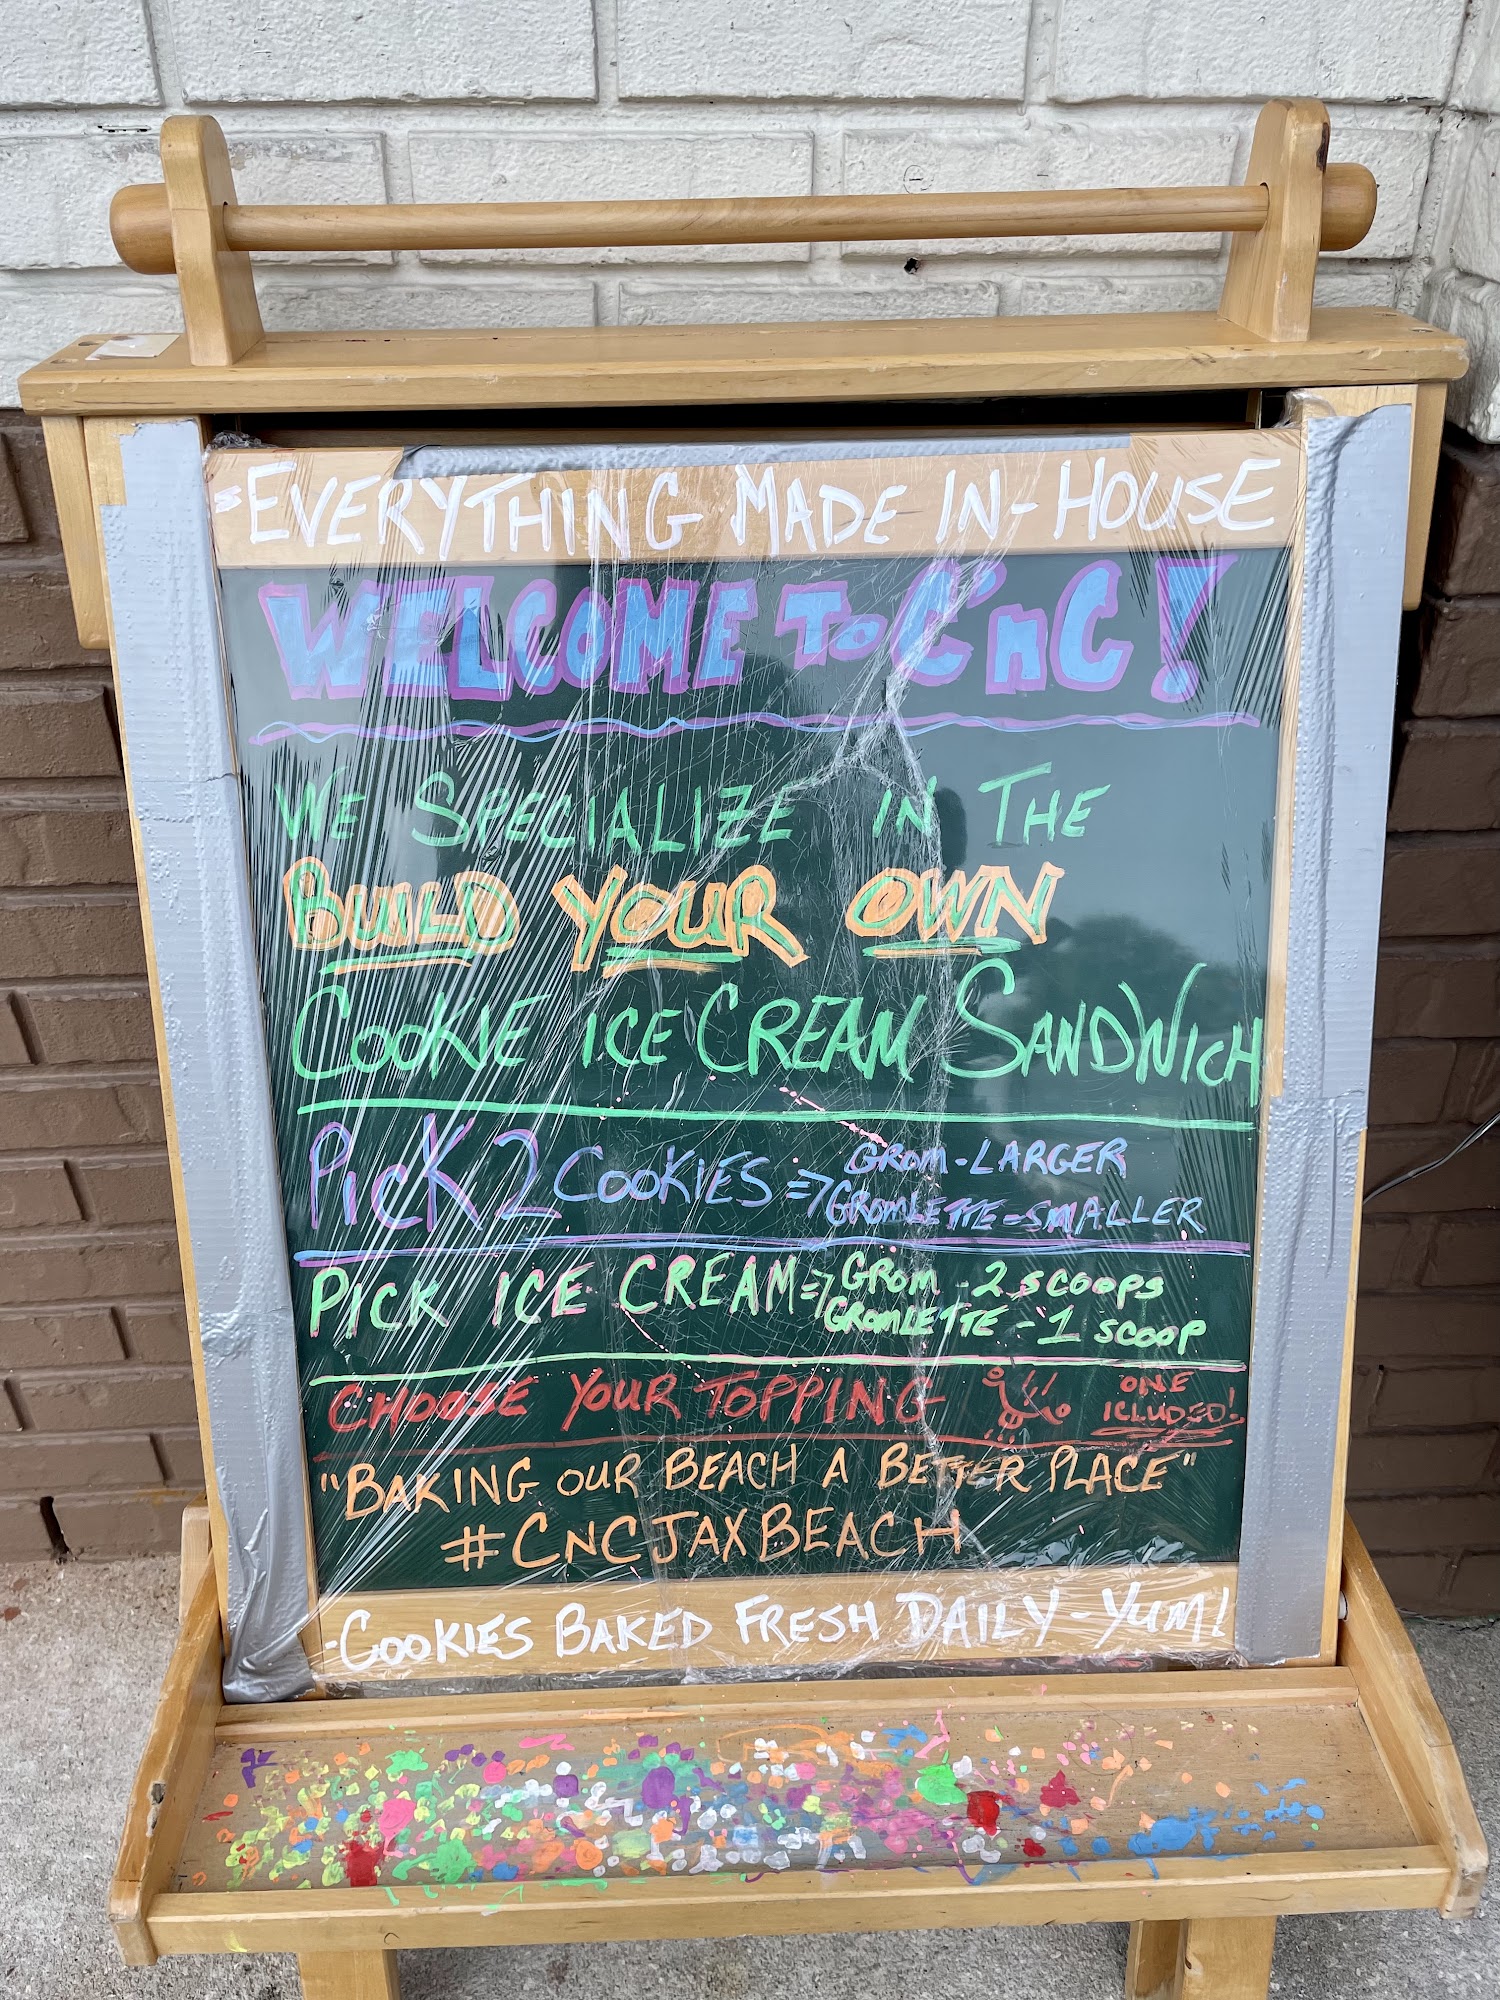 -EVERYTHING MADE IN-HOUSE
WELCOME TO C'nC!
WE SPECIALIZE IN THE
BUILD YOUR OWN
COOKIE ICE CREAM SANDWICH
PICK 2 COOKIES => GROM-LARGER
GROMLETTE-SMALLER
PICK ICE CREAM => GROM - 2 SCOOPS
GROMLETTE - 1 SCOOP
CHOOSE YOUR TOPPING
ONE
ICLUDED!
"BAKING OUR BEACH A BETTER PLACE"
#CNCJAXBEACH
-COOKIES BAKED FRESH DAILY-YUM!